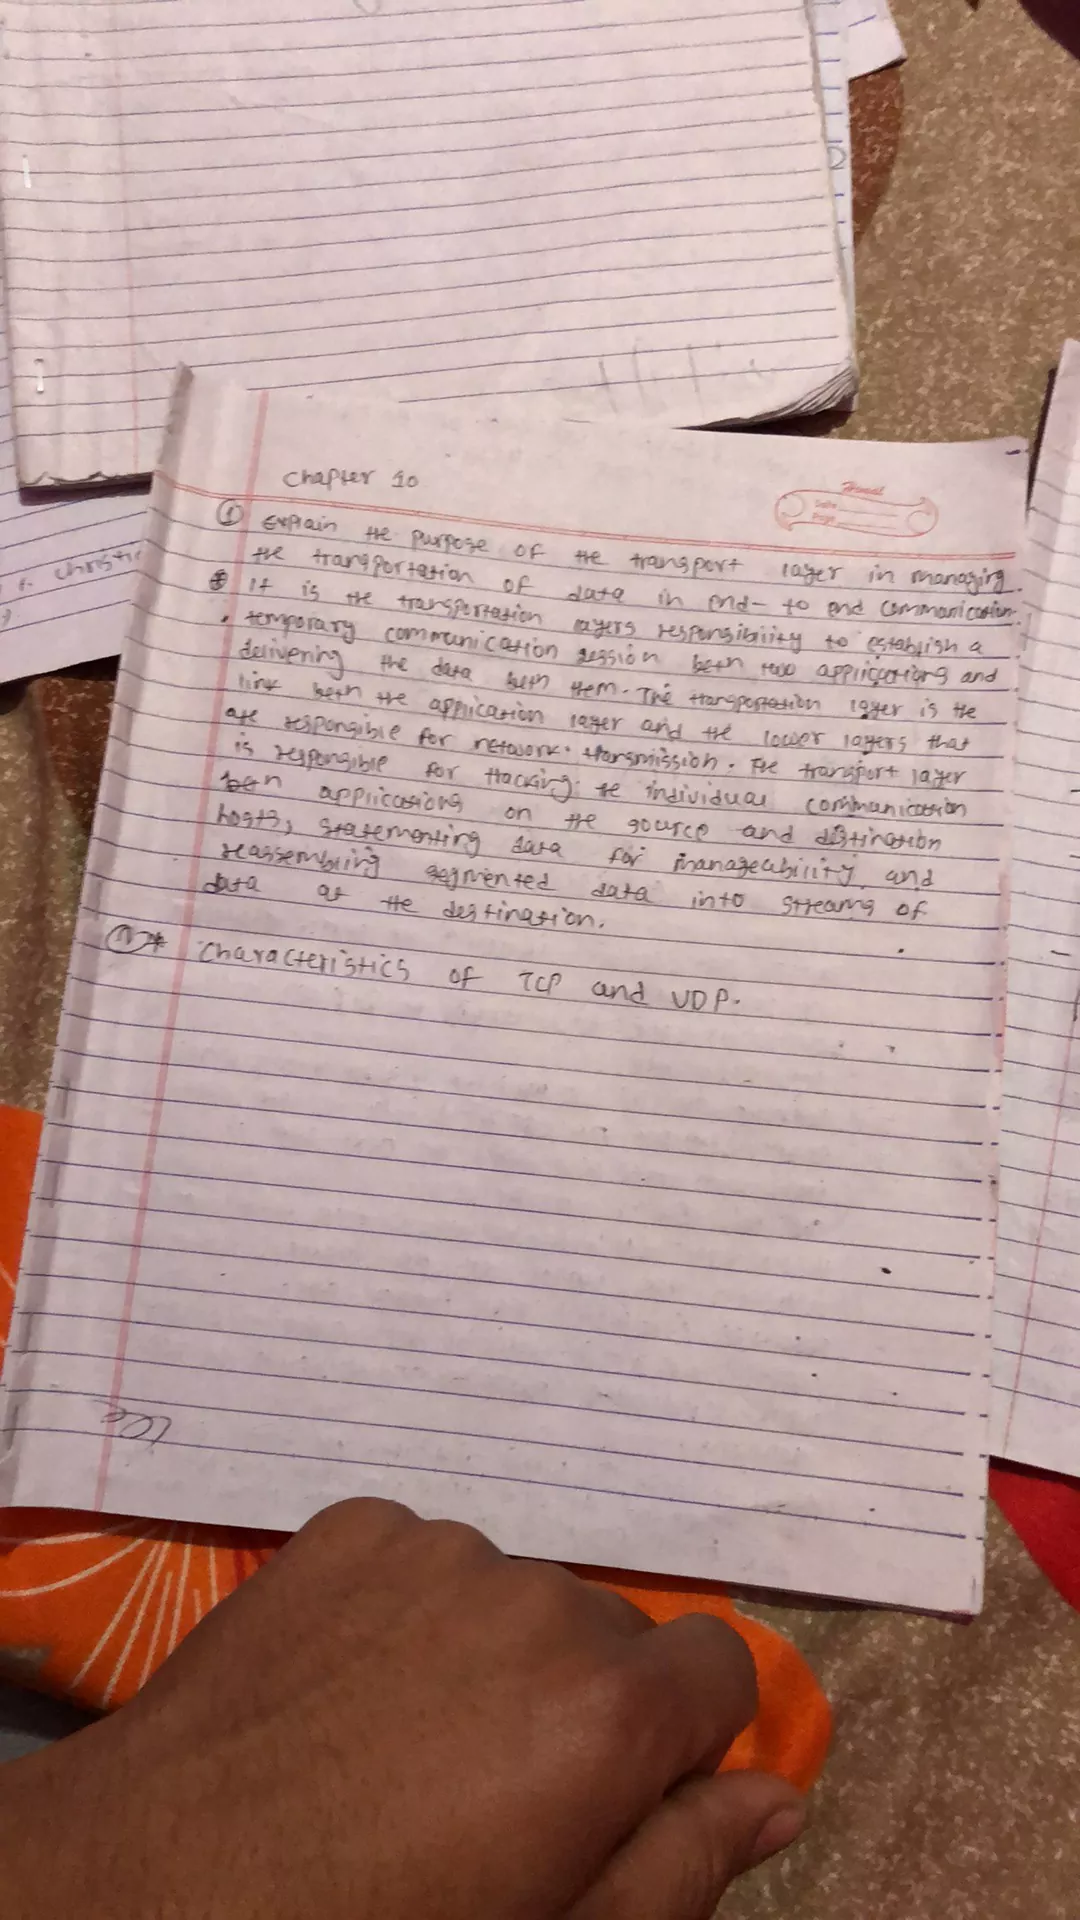 Chapter 10
① Explain the purpose of the transport layer in managing
the transportation of data in end-to end communication.
It is the transportation layers responsibility to establish a
temporary communication session betn two applications and
delivering the data betn them. The transportation layer is the
link betn the application layer and the lower layers that
are responsible for network transmission. The transport layer
is responsible for tracking the individual communication
betn applications on the source and distination
hosts, statementing data for manageability and
reassembling segmented data into streams of
data at the destination.
Characteristics of TCP and UDP.
christie